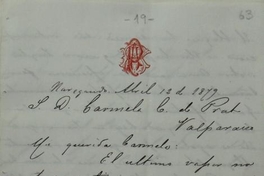 -19-
63
Abril 12 de 1879
S. D. Carmela C. de Prat
Valparaiso
Mi querida Carmela:
El ultimo vapor no